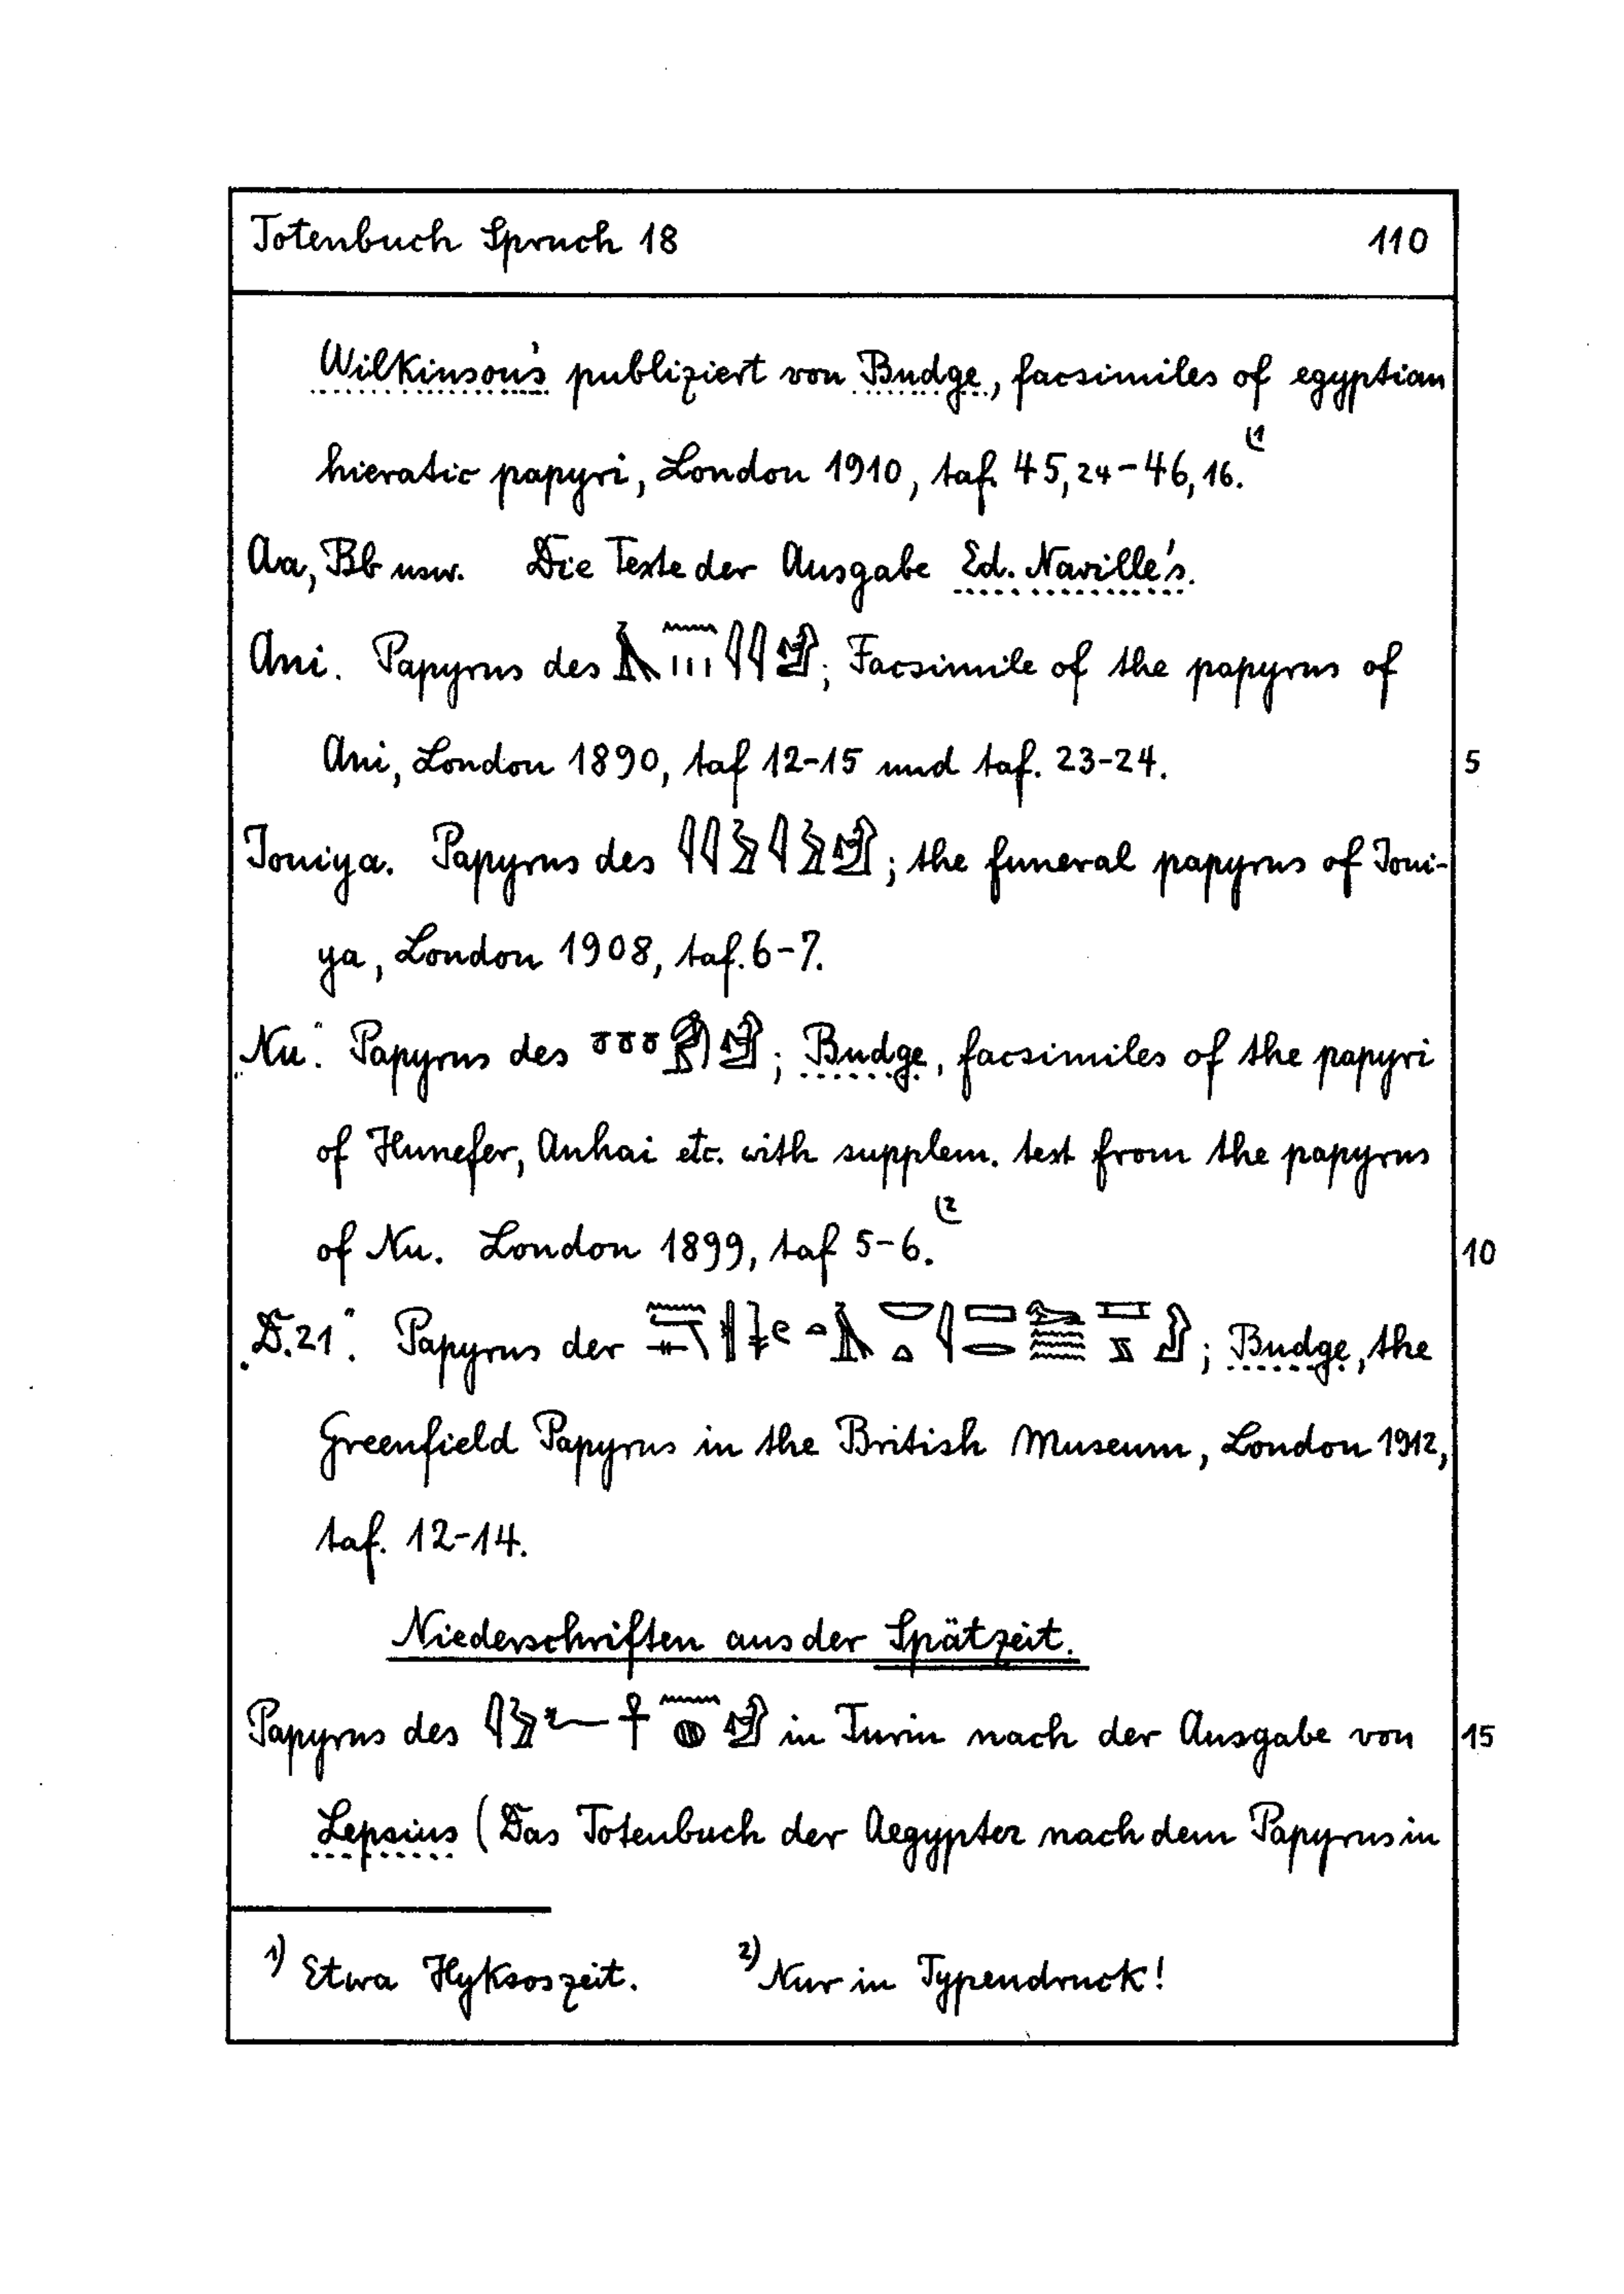 Totenbuch Spruch 18 110
Wilkinson's publiziert von Budge, facsimiles of egyptian
hieratic papyri, London 1910, taf. 45,24-46,16. (1
Aa, Bb usw. Die Texte der Ausgabe Ed. Naville's.
Ani. Papyrus des ; Facsimile of the papyrus of
Ani, London 1890, taf 12-15 und taf. 23-24. 5
Iouiya. Papyrus des ; the funeral papyrus of Ioui-
ya, London 1908, taf. 6-7.
„Nu“. Papyrus des 𓏌𓏌𓏌 ; Budge, facsimiles of the papyri
of Hunefer, Anhai etc. with supplem. text from the papyrus
of Nu. London 1899, taf 5-6. (2 10
„D.21“. Papyrus der ; Budge, the
Greenfield Papyrus in the British Museum, London 1912,
taf. 12-14.
Niederschriften aus der Spätzeit.
Papyrus des in Turin nach der Ausgabe von 15
Lepsius (Das Totenbuch der Aegypter nach dem Papyrus in
1) Etwa Hyksoszeit. 2) Nur in Typendruck!